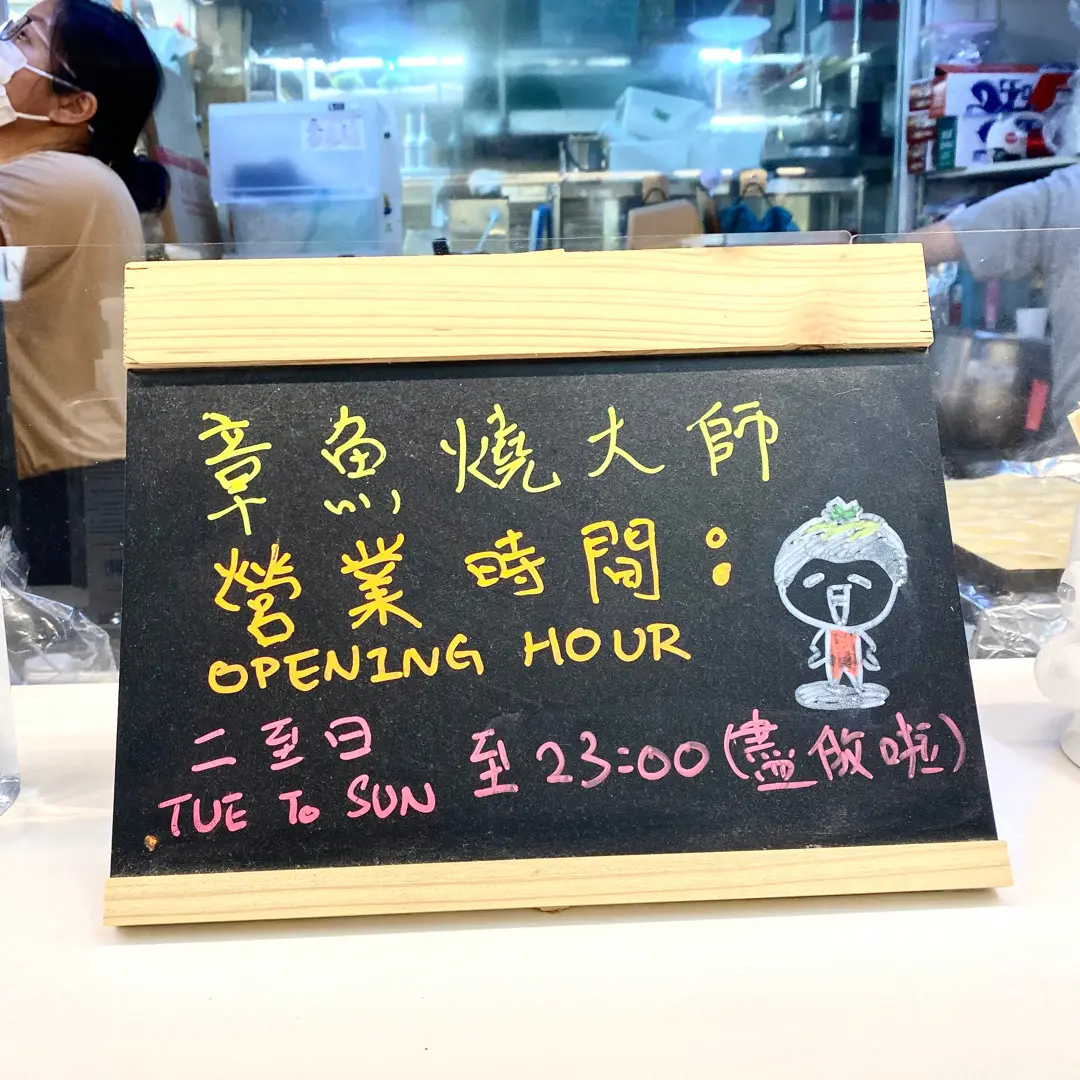 章魚燒大師
營業時間：
OPENING HOUR
二至日 至23:00 (盡做啦)
TUE To SUN